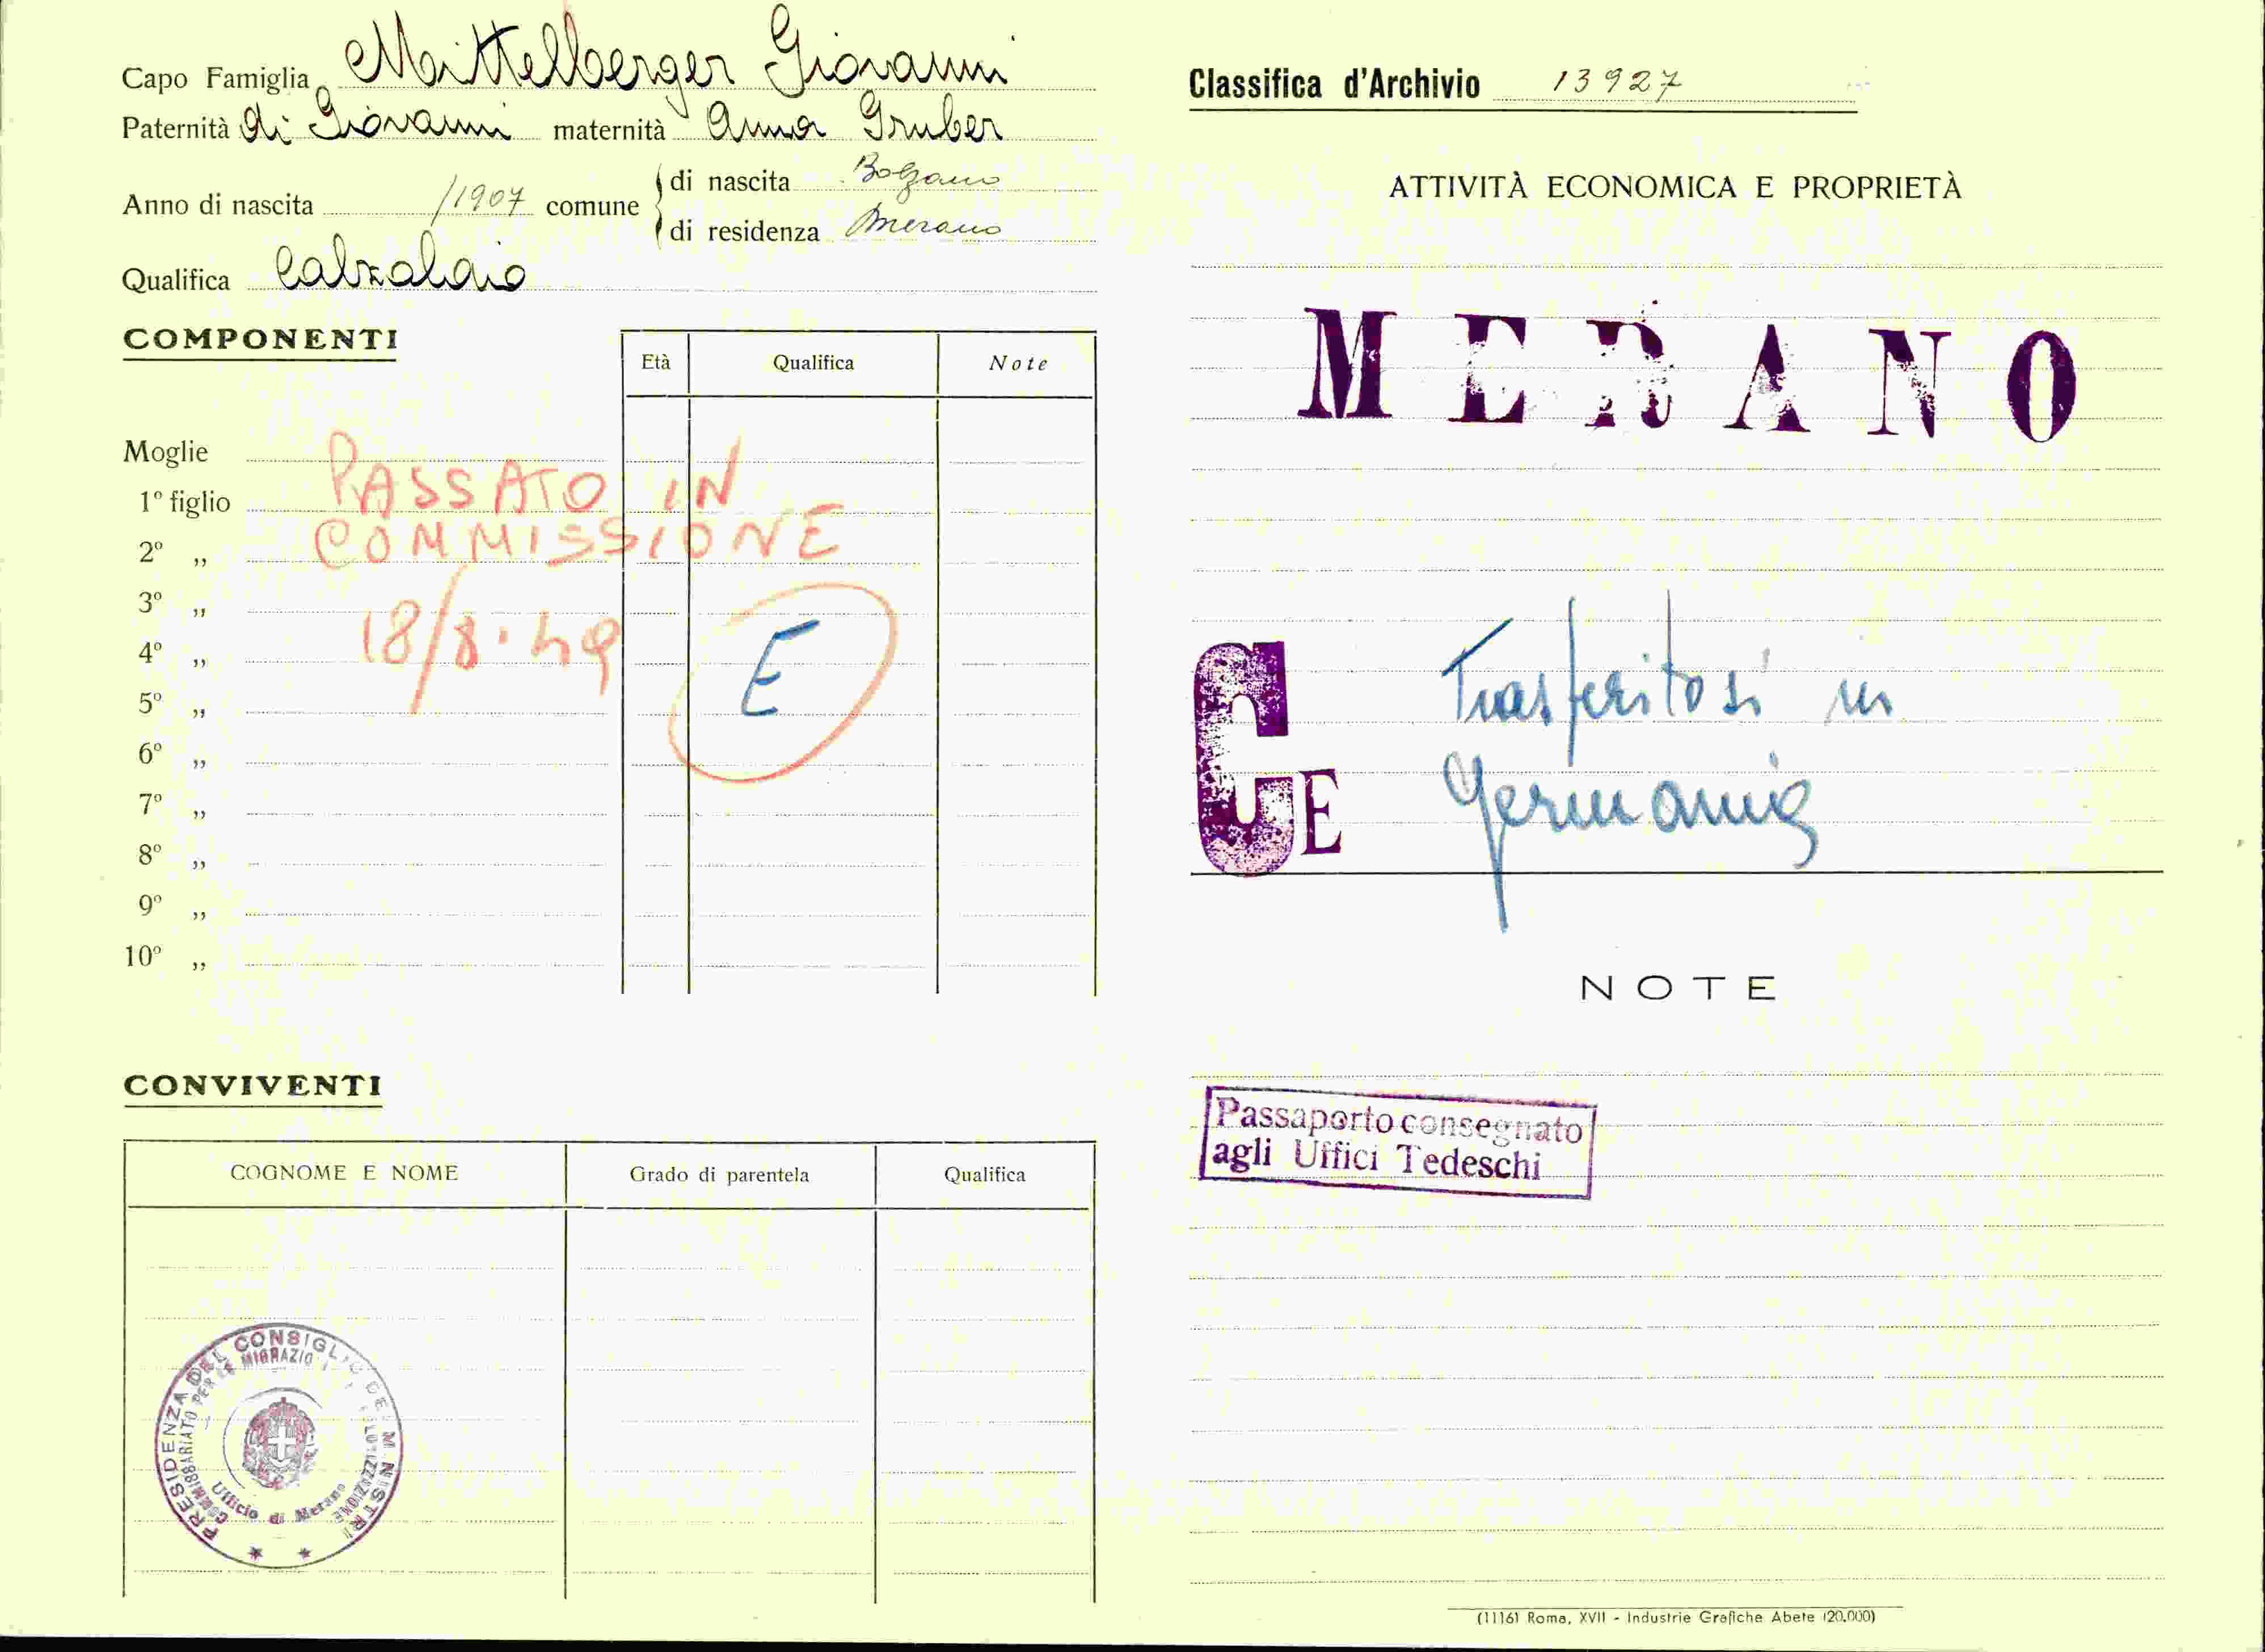 Capo Famiglia Mittelberger Giovanni
Paternità di Giovanni maternità Anna Gruber
Anno di nascita /1907 comune di nascita Bolzano
di residenza Merano
Qualifica Calzolaio
COMPONENTI
Età Qualifica Note
Moglie
1º figlio
2º „
3º „
4º „
5º „
6º „
7º „
8º „
9º „
10º „
PASSATO IN
COMMISSIONE
18/8.49
E
CONVIVENTI
COGNOME E NOME Grado di parentela Qualifica
PRESIDENZA DEL CONSIGLIO DEI MINISTRI
COMMISSARIATO PER LE MIGRAZIONI
Ufficio di Merano
Classifica d'Archivio 13927
ATTIVITÀ ECONOMICA E PROPRIETÀ
MERANO
CE
Trasferitosi in
Germania
NOTE
Passaporto consegnato
agli Uffici Tedeschi
(1116) Roma, XVII - Industrie Grafiche Abete (20.000)